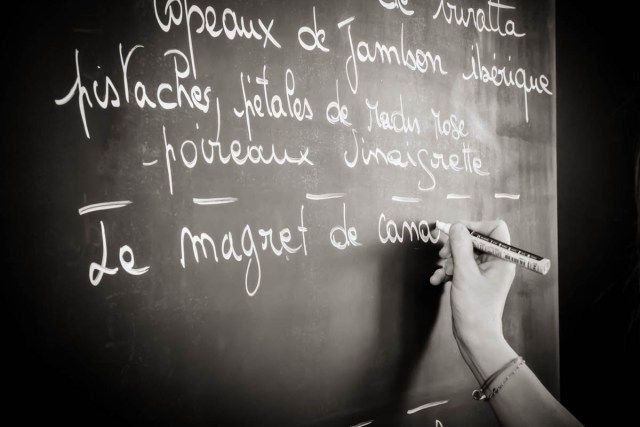 de burratta
Copeaux de Jambon ibérique
pistaches, pétales de radis rose
- poireaux Vinaigrette
Le magret de cana